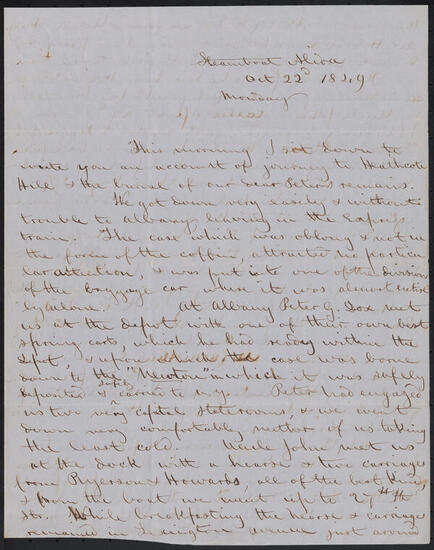 Steamboat Alida
Oct 22d 1849
Monday
This morning I sit down to
write you an account of journey to Heathcote
Hill & the burial of our dear Peter's remains.
We got down very easily & without
trouble to Albany leaving in the Express
train. The case which was oblong & not in
the form of the coffin, attracted no particu
lar attention, & was put into one of the divisions
of the baggage car where it was almost entirely
by alone. At Albany Peter G. Fox met
us at the depot with one of their own best
spring carts, which he had ready within the
Dpot, & upon which the case was borne
down to the "Newton" in which it was safely
deposited & safely carried to N.Y. Peter had engaged
us two very capital staterooms, & we went
down very comfortably neither of us taking
the least cold. Uncle John met us
at the dock with a hearse & two carriages
from Ryerson & Howards, all of the best kind,
& from the boat we went up to 27th
Str. While breakfasting the hearse & carriages
remained in Lexington Avenue just around